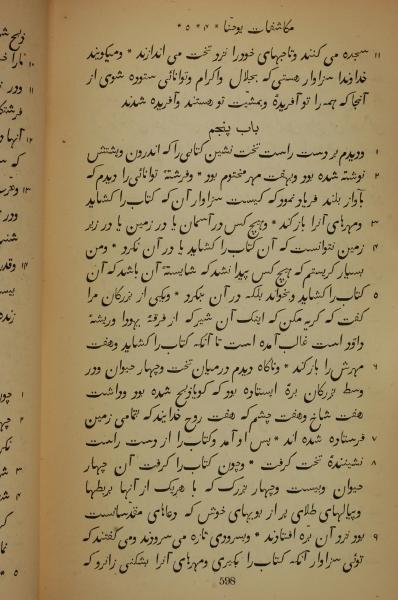 مکاشفات یوحنا * ۴ * ۵ *
۱۱ سجده می کنند وتاجهای خودرا نزد تخت می اندازند * ومیگویند
خداوندا سزاوار هستی که بجلال واکرام وتوانائی ستوده شوی از
آنجا که همه را تو آفریدهٔ وبمشیّت تو هستند وآفریده شدند
باب پنجم
۱ ودیدم بر دست راست تخت نشین کتابی را که اندرون وپشتش
۲ نوشته شده بود وبهفت مهر مختوم بود * وفرشتهٔ توانائی را دیدم که
بآواز بلند فریاد نمود که کیست سزاوار آن که کتاب را کشاید
۳ ومهرهای آنرا باز کند * وهیچ کس در آسمان یا در زمین یا در زیر
۴ زمین نتوانست که آن کتاب را کشاید یا در آن نگرد * ومن
بسیار گریستم که هیچ کس پیدا نشد که شایستهٔ آن باشد که آن
۵ کتاب را کشاید وبخواند بلکه در آن نیگرد * ویکی از بزرگان مرا
گفت که گریه مکن که اینک آن شیر که از فرقهٔ یهودا وریشهٔ
داؤد است غالب آمده است تا آنکه کتاب را کشاید وهفت
۶ مهرش را باز کند * وناگاه دیدم در میان تخت وچهار حیوان ودر
وسط بزرگان برهٔ ایستاده بود که گویا ذبح شده بود وداشت
هفت شاخ وهفت چشم که هفت روح خدایند که بتمامی زمین
۷ فرستاده شده اند * پس او آمد وکتاب را از دست راست
۸ نشینندهٔ تخت گرفت * وچون کتاب را گرفت آن چهار
حیوان وبیست وچهار بزرگ که با هریک از آنها بربطها
وپیالهای طلائی پر از بویهای خوش که دعاهای مقدّسانست
۹ بود نزد آن بره افتادند * وبسرودی تازه می سرودند ومی گفتند که
توئی سزاوار آنکه کتاب را بگیری ومهرهای آنرا بشکنی زانرو که
598